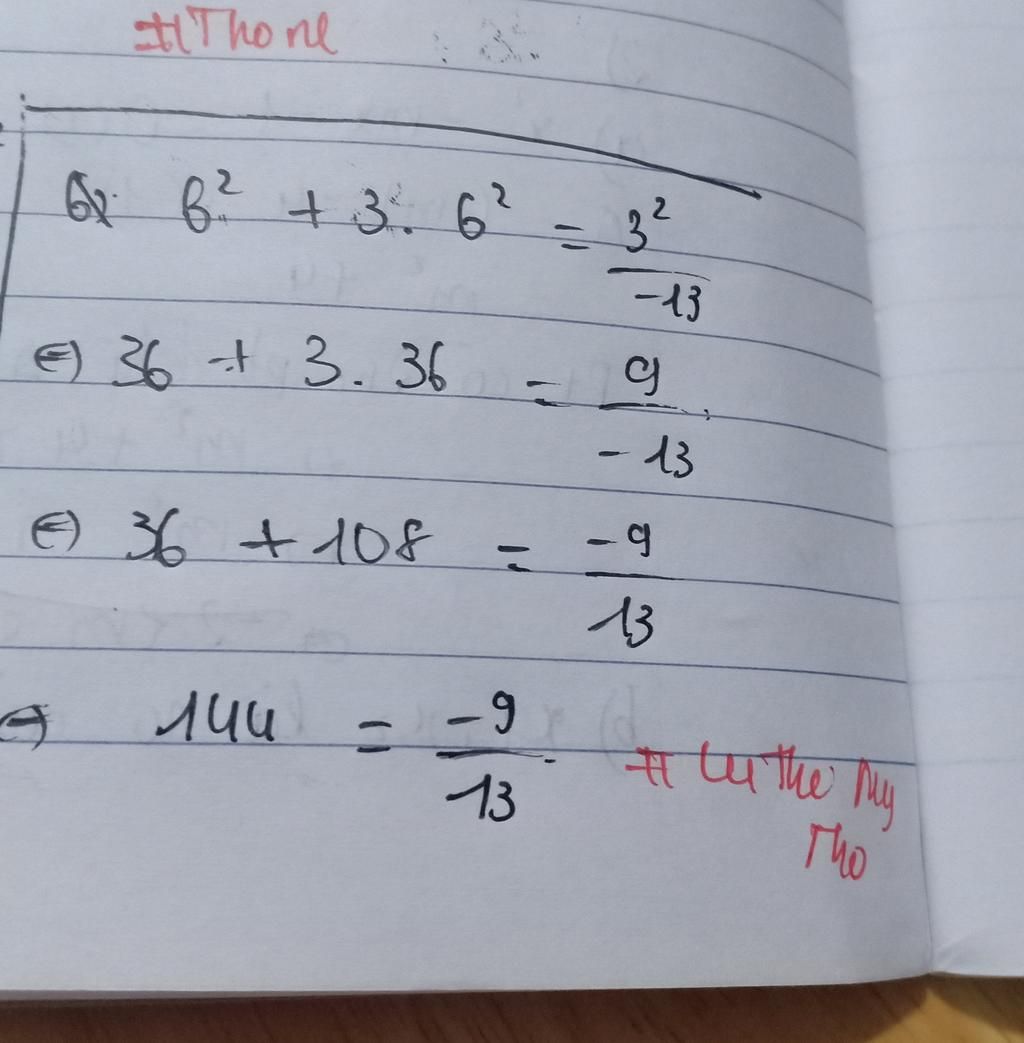 #Thone
6x 6² + 3. 6² = 3²/-13
⇔ 36 + 3. 36 = 9/-13
⇔ 36 + 108 = -9/13
⇔ 144 = -9/13
# Lu The My
Tho